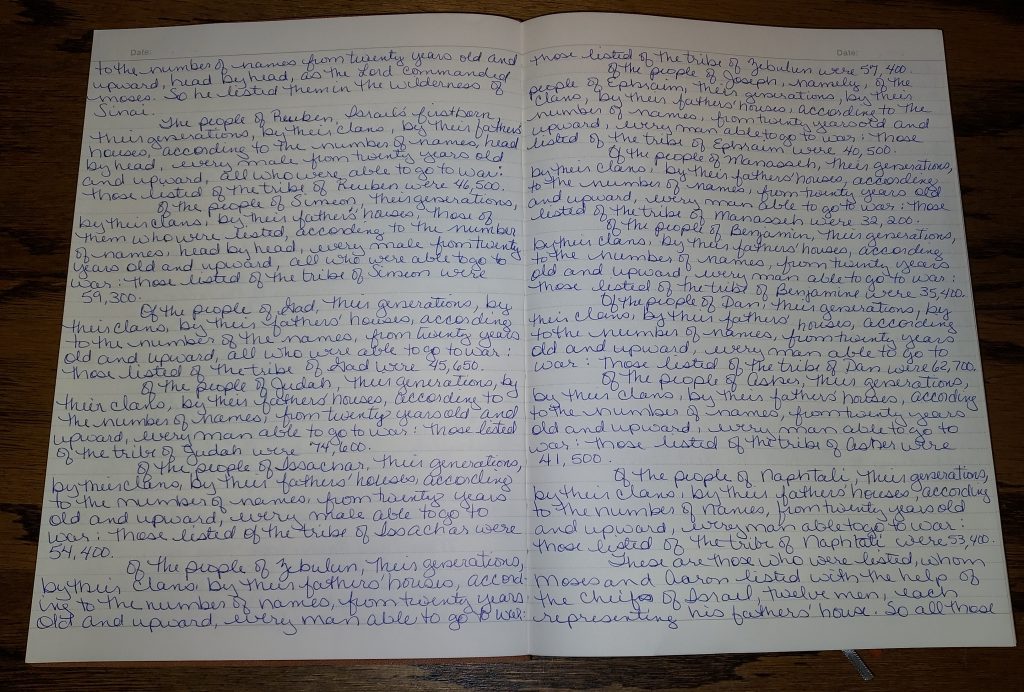 Date:
to the number of names from twenty years old and
upward, head by head, as the Lord commanded
Moses. So he listed them in the wilderness of
Sinai.
The people of Reuben, Israel's firstborn,
their generations, by their clans, by their fathers'
houses, according to the number of names, head
by head, every male from twenty years old
and upward, all who were able to go to war:
Those listed of the tribe of Reuben were 46,500.
Of the people of Simeon, their generations,
by their clans, by their fathers' houses, those of
them who were listed, according to the number
of names, head by head, every male from twenty
years old and upward, all who were able to go to
war: those listed of the tribe of Simeon were
59,300.
Of the people of Gad, their generations, by
their clans, by their fathers' houses, according
to the number of the names, from twenty years
old and upward, all who were able to go to war:
those listed of the tribe of Gad were 45,650.
Of the people of Judah, their generations, by
their clans, by their fathers' houses, according to
the number of names, from twenty years old and
upward, every man able to go to war: those listed
of the tribe of Judah were 74,600.
Of the people of Issachar, their generations,
by their clans, by their fathers' houses, according
to the number of names, from twenty years
old and upward, every male able to go to
war: those listed of the tribe of Issachar were
54,400.
Of the people of Zebulun, their generations,
by their clans, by their fathers' houses, accord-
ing to the number of names, from twenty years
old and upward, every man able to go to war:
Date:
those listed of the tribe of Zebulun were 57,400.
Of the people of Joseph, namely, of the
people of Ephraim, their generations, by their
clans, by their fathers' houses, according to the
number of names, from twenty years old and
upward, every man able to go to war: those
listed of the tribe of Ephraim were 40,500.
Of the people of Manasseh, their generations,
by their clans, by their fathers' houses, according
to the number of names, from twenty years old
and upward, every man able to go to war: those
listed of the tribe of Manasseh were 32,200.
Of the people of Benjamin, their generations,
by their clans, by their fathers' houses, according
to the number of names, from twenty years
old and upward, every man able to go to war:
those listed of the tribe of Benjamine were 35,400.
Of the people of Dan, their generations, by
their clans, by their fathers' houses, according
to the number of names, from twenty years
old and upward, every man able to go to
war: those listed of the tribe of Dan were 62,700.
Of the people of Asher, their generations,
by their clans, by their fathers' houses, according
to the number of names, from twenty years
old and upward, every man able to go to
war: those listed of the tribe of Asher were
41,500.
Of the people of Naphtali, their generations,
by their clans, by their fathers' houses, according
to the number of names, from twenty years old
and upward, every man able to go to war:
those listed of the tribe of Naphtali were 53,400.
These are those who were listed, whom
Moses and Aaron listed with the help of
the cheifs of Israel, twelve men, each
representing his fathers' house. So all those